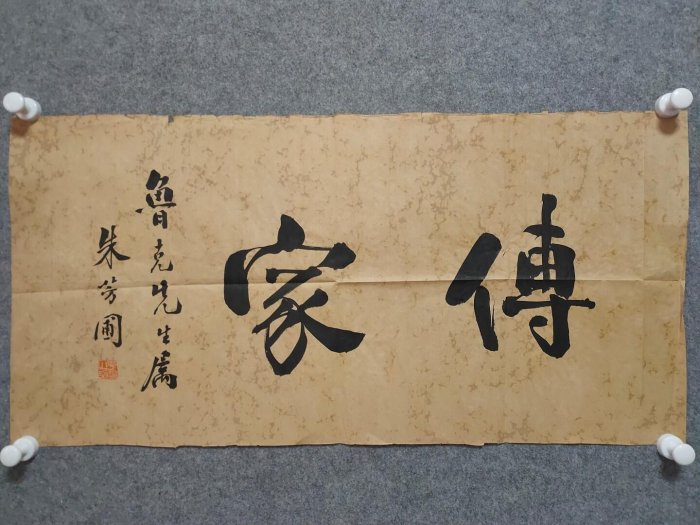 傳家
魯克先生屬
朱芳圃